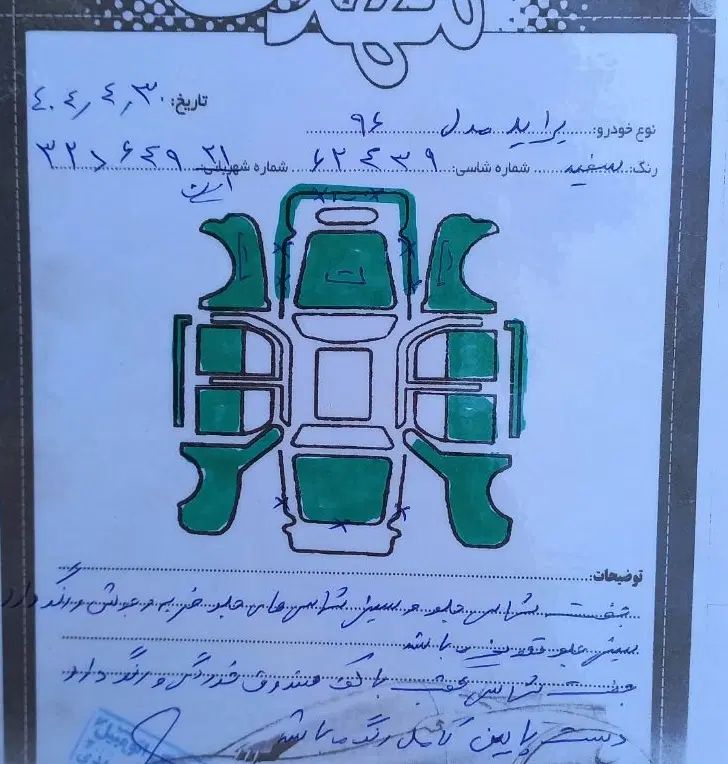 تاریخ: ۴۰۴/۴/۳۰
نوع خودرو: پراید مدل ۹۶
رنگ: سفید شماره شاسی: ۶۲۴۳۹ شماره شهربانی
ت
توضیحات:
جفت شاسی جلو و سینی شاسی های جلو ضربه و جوش و رنگ دارد
سینی جلو تعویض می باشد
جفت شاسی عقب با کف صندوق خوردگی و رنگ دارد
دست پایین کامل رنگ می باشد